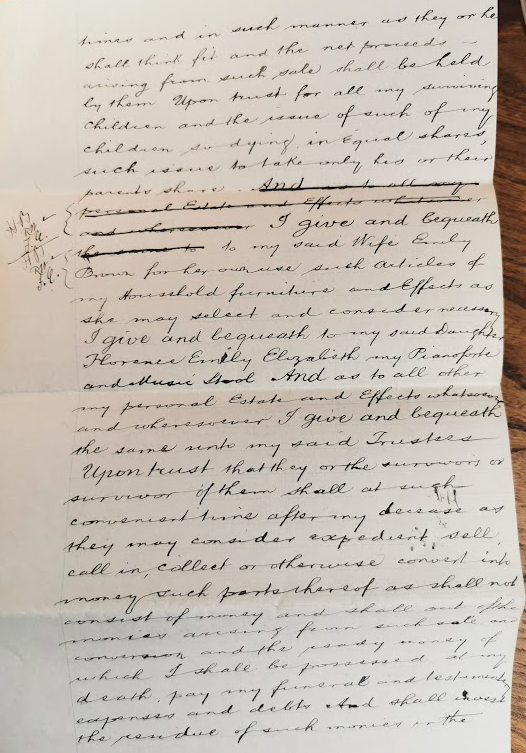 times and in such manner as they or he
shall think fit and the net proceeds
arising from such sale shall be held
by them Upon trust for all my surviving
Children and the issue of such of my
Children so dying in Equal shares,
such issue to take only his or their
parents share. And as to all my
personal Estate and Effects whatsoever
and wheresoever I give and bequeath
the same to to my said Wife Emily
Brown for her own use such Articles of
my Household furniture and Effects as
she may select and consider necessary
I give and bequeath to my said Daughter
Florence Emily Elizabeth my Pianoforte
and Music Stool And as to all other
my personal Estate and Effects whatsoever
and wheresoever I give and bequeath
the same unto my said Trustees
Upon trust that they or the survivors or
survivor of them shall at such
convenient time after my decease as
they may consider expedient sell,
call in, collect or otherwise convert into
money such parts thereof as shall not
consist of money and shall out of the
monies arising from such sale and
conversion and the ready money of
which I shall be possessed at my
death, pay my funeral and testamentary
expenses and debts And shall invest
the residue of such monies in the